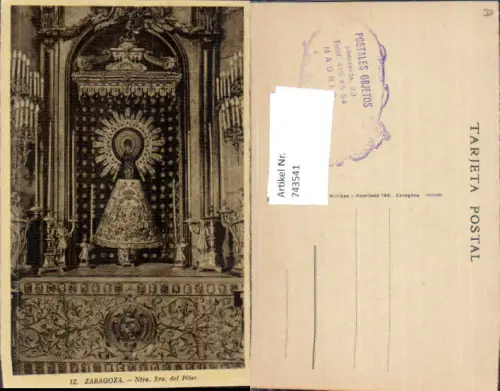 12. ZARAGOZA.— Ntra. Sra. del Pilar.
A
POSTALES OBJETOS
MADRID
Artikel Nr.
743541
Arribas - Apartado 156. Zaragoza
TARJETA POSTAL